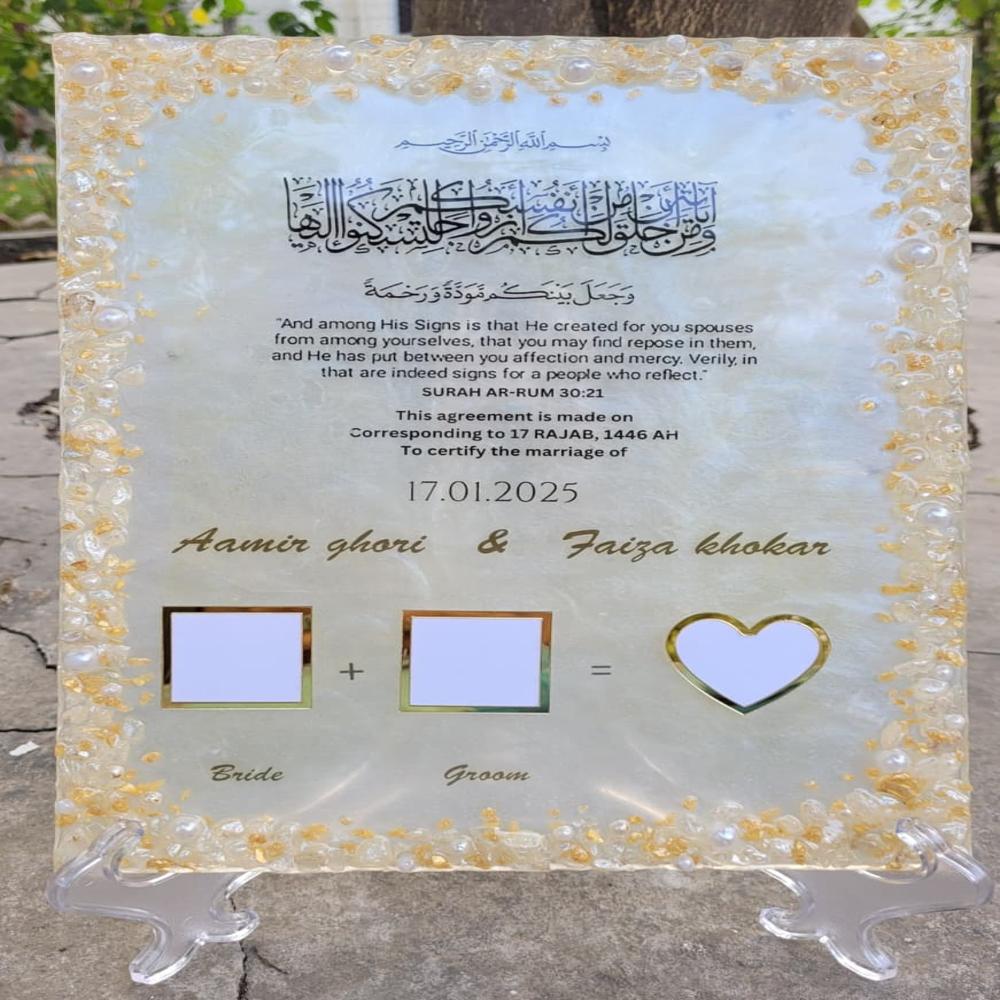 بسم الله الرحمن الرحيم
ومن آياته أن خلق لكم من أنفسكم أزواجا لتسكنوا إليها
وَجَعَلَ بَيْنَكُم مَّوَدَّةً وَرَحْمَةً
"And among His Signs is that He created for you spouses
from among yourselves, that you may find repose in them,
and He has put between you affection and mercy. Verily, in
that are indeed signs for a people who reflect."
SURAH AR-RUM 30:21
This agreement is made on
Corresponding to 17 RAJAB, 1446 AH
To certify the marriage of
17.01.2025
Aamir ghori & Faiza khokar
+ =
Bride Groom